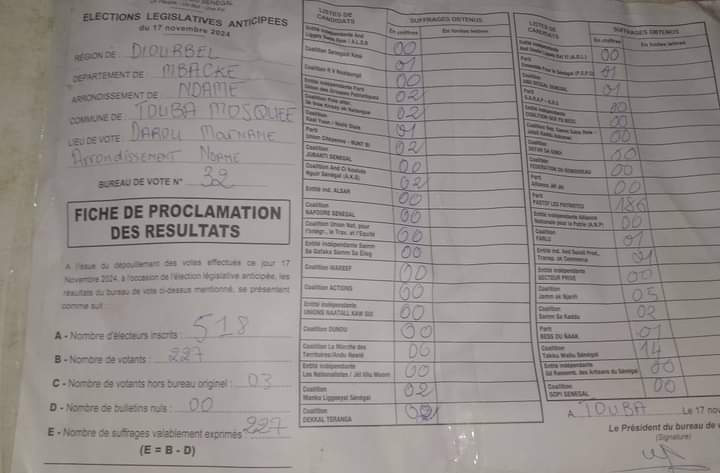 ELECTIONS LEGISLATIVES ANTICIPEES
du 17 novembre 2024
RÉGION DE : DIOURBEL
DEPARTEMENT DE : MBACKE
ARRONDISSEMENT DE : NDAME
COMMUNE DE : TOUBA MOSQUEE
LIEU DE VOTE : DAROU
Arrondissement NDAME
BUREAU DE VOTE N° 32
FICHE DE PROCLAMATION
DES RESULTATS
A l'issue du dépouillement des votes effectués ce jour 17
Novembre 2024, à l'occasion de l'élection législative anticipée, les
résultats du bureau de vote ci-dessus mentionné, se présentent
comme suit :
A - Nombre d'électeurs inscrits : 518
B - Nombre de votants : 227
C - Nombre de votants hors bureau originel : 03
D - Nombre de bulletins nuls : 00
E - Nombre de suffrages valablement exprimés 227
(E = B - D)
LISTES DE
CANDIDATS
SUFFRAGES OBTENUS
En chiffres
En toutes lettres
Entité indépendante And
00
Coalition Senegaal Kese 01
00
Entité indépendante Parti
Union des Groupes Patriotiques 02
02
01
Parti
Union Citoyenne - BUNT BI 02
Coalition
JUBANTI SENEGAL 00
Coalition And Ci Koolute
Nguir Senegaal (A.K.S) 02
Entité ind. ALSAR 00
Coalition
NAFOORE SENEGAL 00
Coalition Union Nat. pour
l'Intégr., le Trav. et l'Equité 00
Entité indépendante Samm
00
Coalition WAREEF 00
Coalition ACTIONS 00
Entité indépendante
UNIONS NAATALL KAW GUI 00
Coalition DUNDU 00
Coalition La Marche des
Territoires/Andu Nawlé
Entité indépendante
Les Nationalistes / Jël Liñu Moom 00
Coalition
Manko Liggeeyal Sénégal 02
Coalition
DEKKAL TERANGA
LISTES DE
CANDIDATS
SUFFRAGES OBTENUS
En chiffres
En toutes lettres
Entité indépendante
00
01
Coalition
AND BEGUE SENEGAL 01
Parti
Entité indépendante
00
00
Coalition
DEFAR SA GOKH 00
Coalition
00
Parti
00
Parti
PASTEF LES PATRIOTES 186
Entité indépendante Alliance
Nationale pour la Patrie (A.N.P) 00
Coalition
FARLU 01
Entité Ind. And Suxali Prod.,
Transp. ak Commerce 01
Entité indépendante
SECTEUR PRIVE 00
Coalition
Jamm ak Njariñ 05
Coalition
Samm Sa Kaddu 02
Parti
BESS DU ÑAKK 01
Coalition
Takku Wallu Sénégal 14
Entité indépendante
Gd Rassemb. des Artisans du Sénégal 00
Coalition
SOPI SENEGAL 00
A TOUBA, le 17
Le Président du bureau de
(Signature)